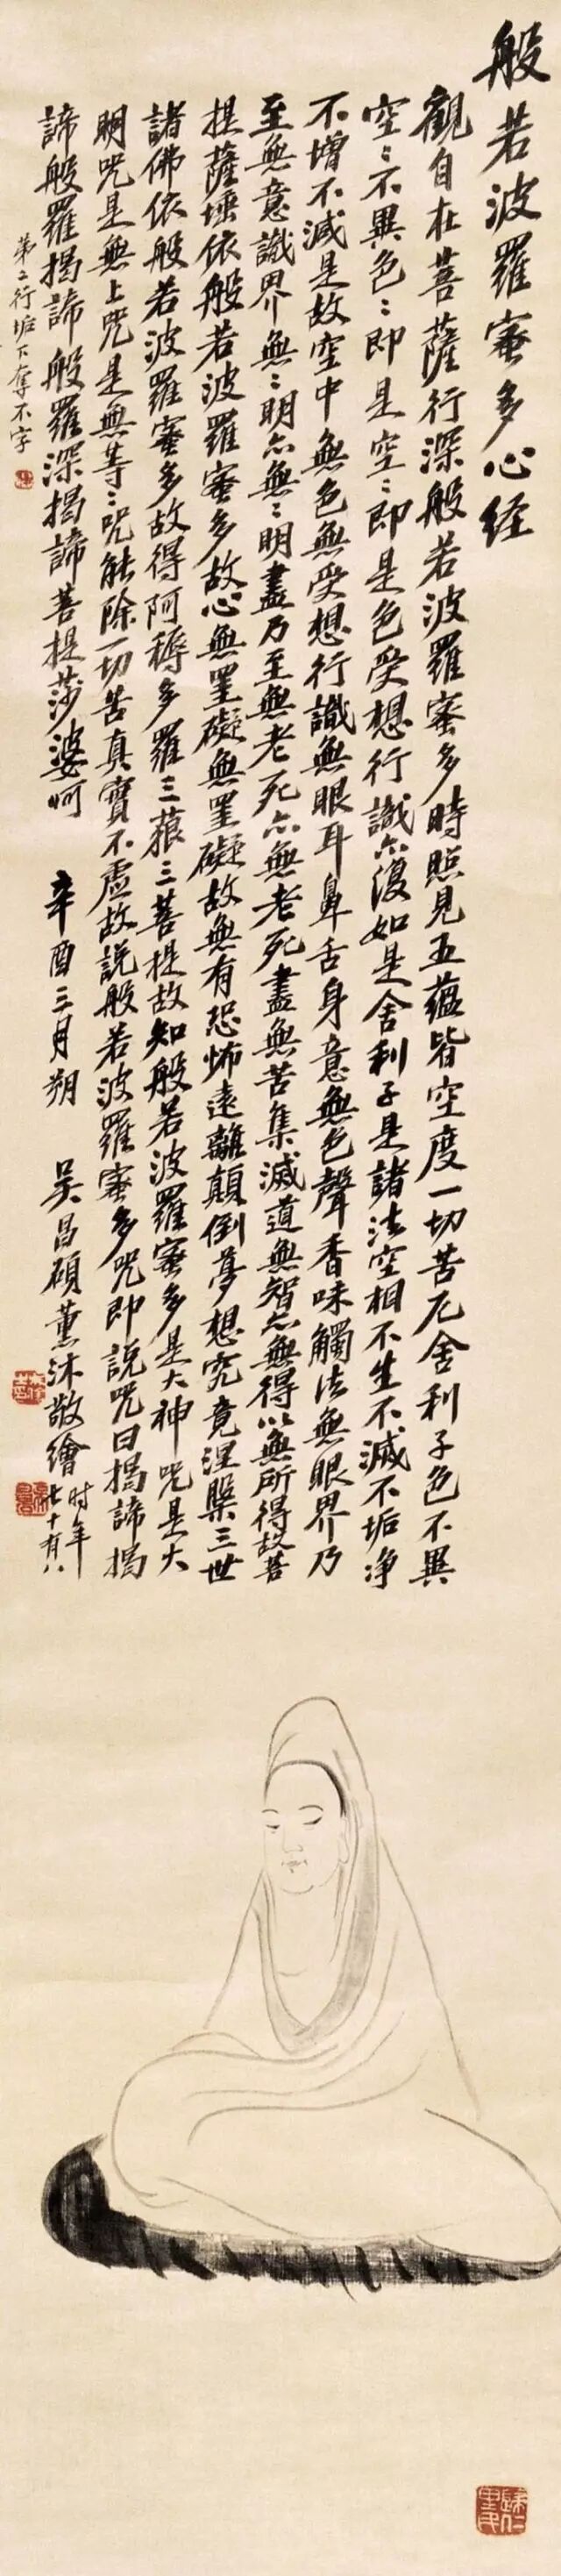 般若波羅蜜多心经
觀自在菩薩行深般若波羅蜜多時照見五蘊皆空度一切苦厄舍利子色不異
空〻不異色〻即是空〻即是色受想行識亦復如是舍利子是諸法空相不生不滅不垢净
不增不減是故空中無色無受想行識無眼耳鼻舌身意無色聲香味觸法無眼界乃
至無意識界無〻明亦無〻明盡乃至無老死亦無老死盡無苦集滅道無智亦無得以無所得故菩
提薩埵依般若波羅蜜多故心無罣礙無罣礙故無有恐怖遠離顛倒夢想究竟涅槃三世
諸佛依般若波羅蜜多故得阿耨多羅三藐三菩提故知般若波羅蜜多是大神咒是大
明咒是無上咒是無等〻咒能除一切苦真實不虛故説般若波羅蜜多咒即説咒曰揭諦揭
諦般羅揭諦般羅深揭諦菩提莎婆呵 辛酉三月朔 吳昌碩薰沐敬繪時年七十有八
第二行垢下奪不字
歸仁里民